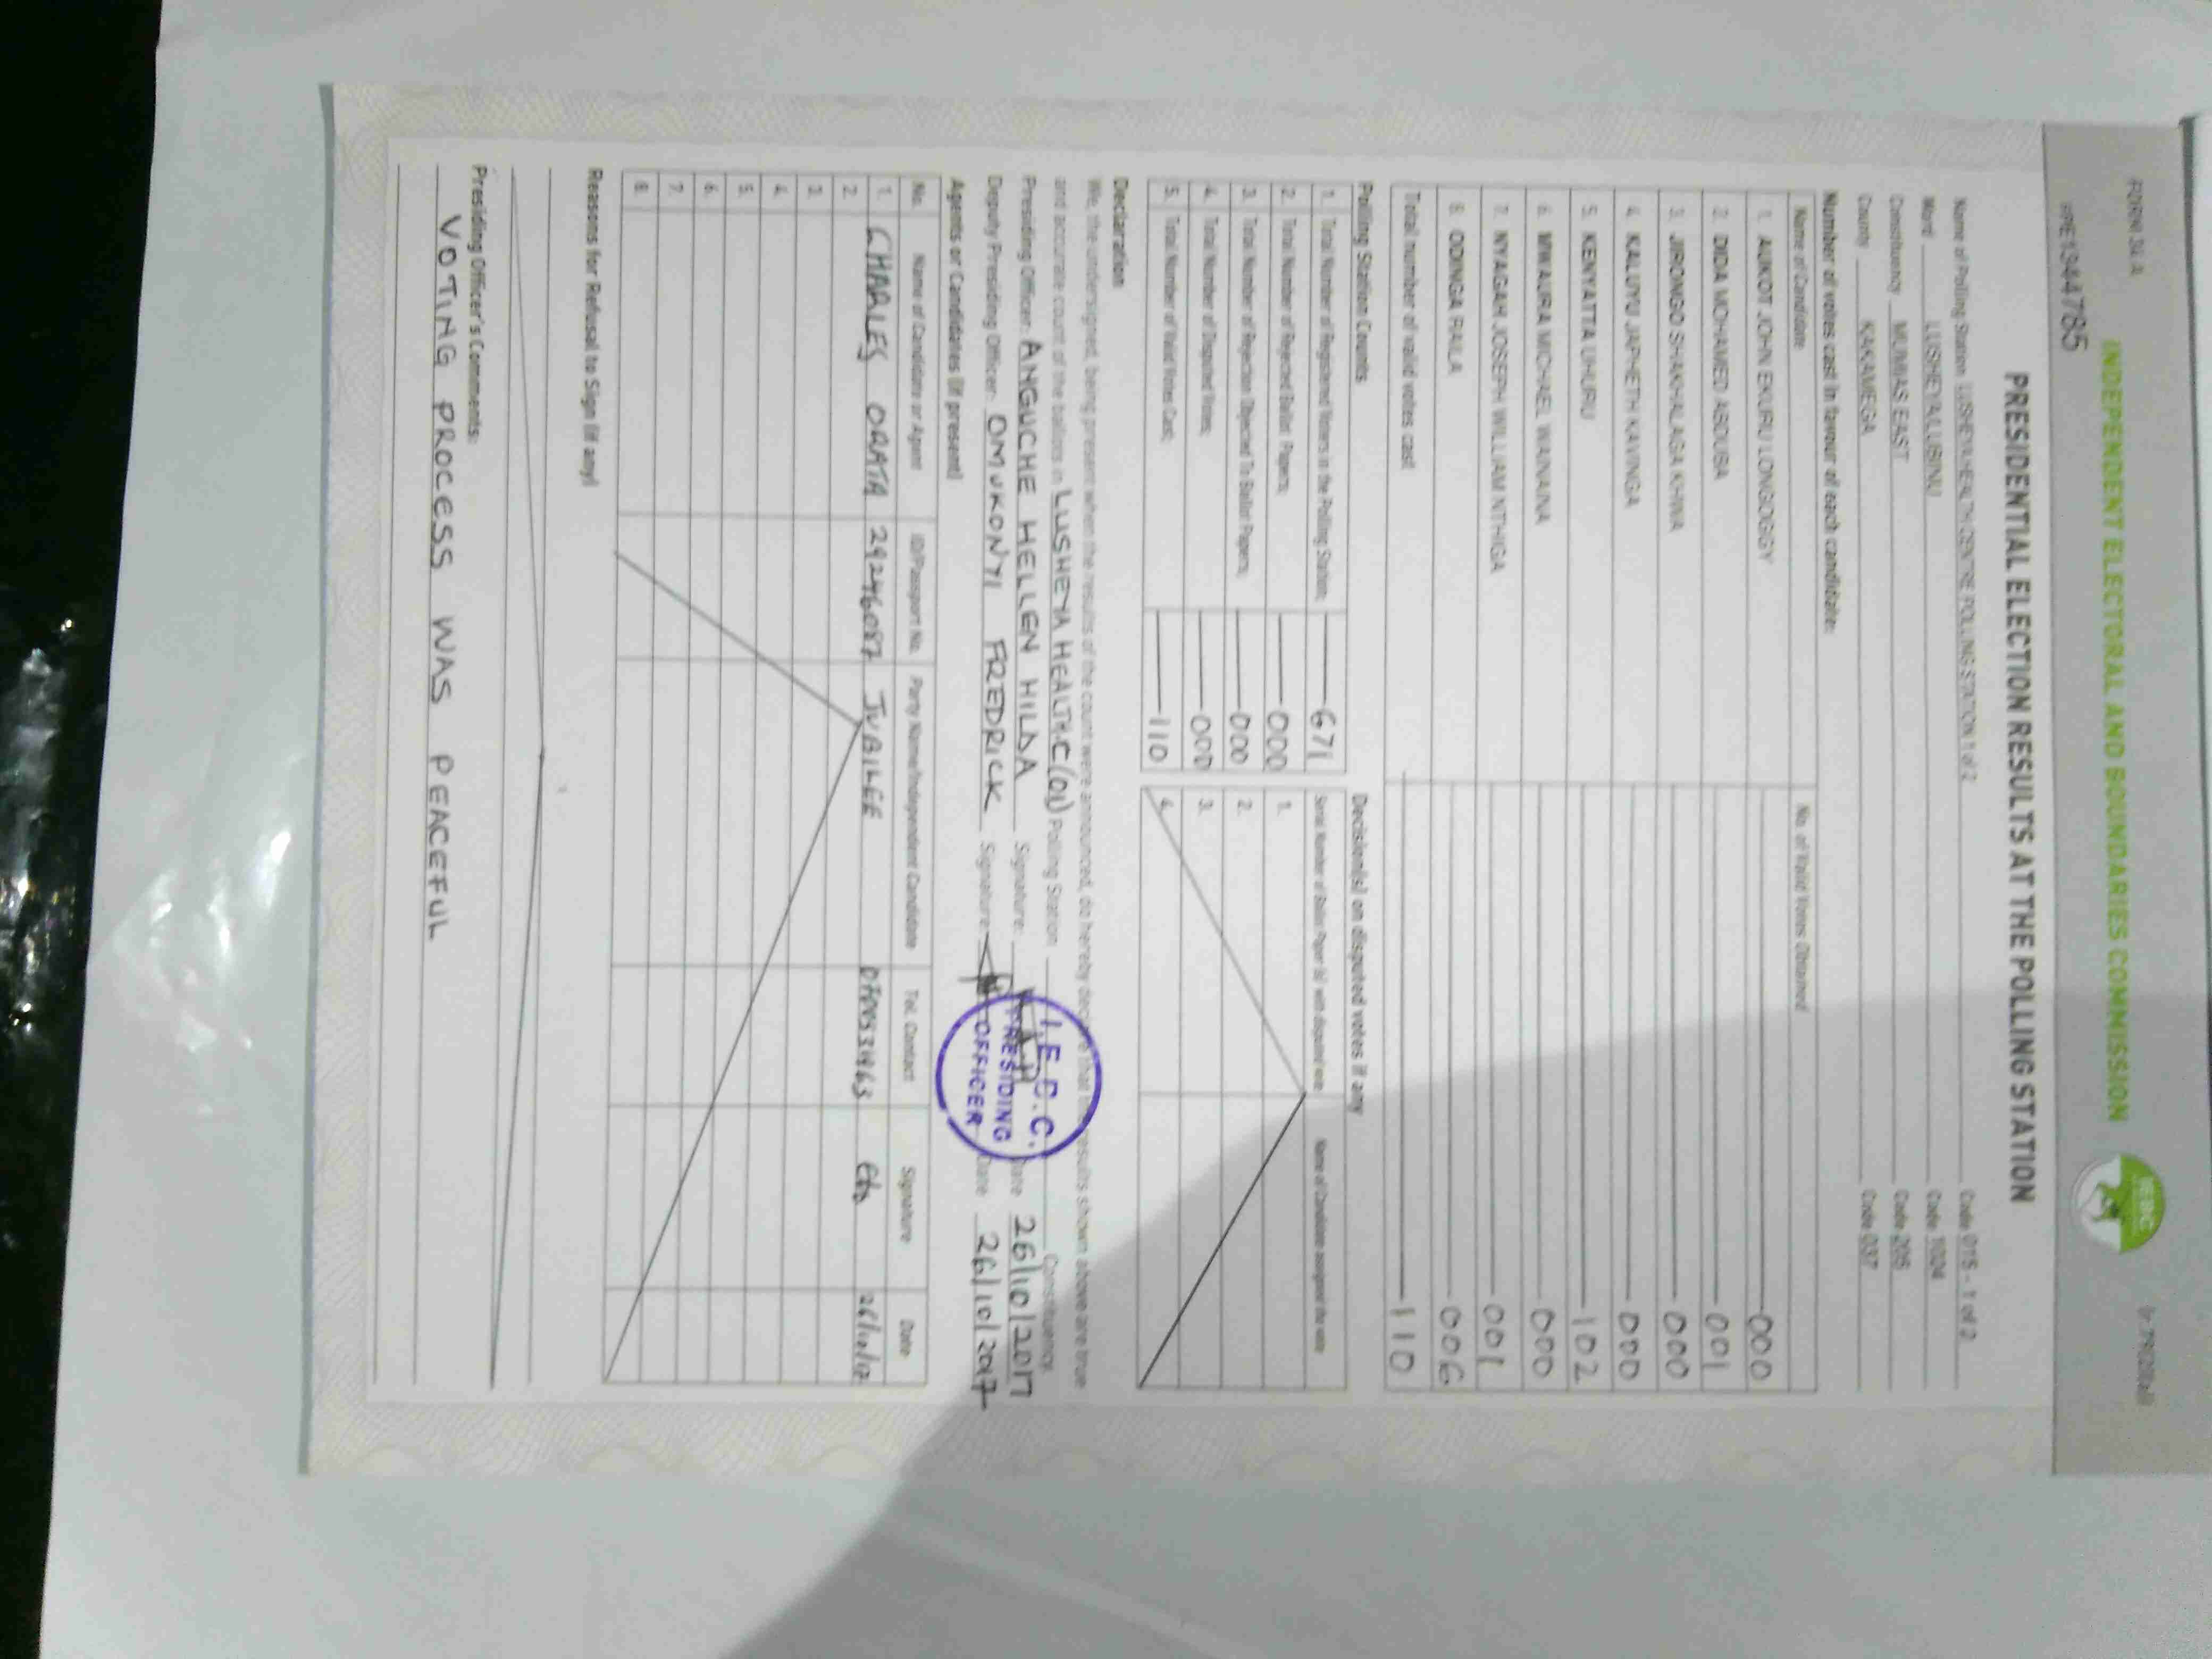 FORM 34 A
INDEPENDENT ELECTORAL AND BOUNDARIES COMMISSION
IEBC
(r.79(2)(a))
PRE1344785
PRESIDENTIAL ELECTION RESULTS AT THE POLLING STATION
Name of Polling Station LUSHEYA HEALTH CENTRE POLLING STATION 1 of 2 Code 015 - 1 of 2
Ward LUSHEYA/LUBINU Code 1024
Constituency MUMIAS EAST Code 205
County KAKAMEGA Code 037
Number of votes cast in favour of each candidate:
Name of Candidate No. of Valid Votes Obtained
1. AUKOT JOHN EKURU LONGOGGY 000
2. DIDA MOHAMED ABDUBA 001
3. JIRONGO SHAKHALAGA KHWA 000
4. KALUYU JAPHETH KAVINGA 000
5. KENYATTA UHURU 102
6. MWAURA MICHAEL WAINAINA 000
7. NYAGAH JOSEPH WILLIAM NTHIGA 001
8. ODINGA RAILA 006
Total number of valid votes cast 110
Polling Station Counts
1. Total Number of Registered Voters in the Polling Station: 671
2. Total Number of Rejected Ballot Papers: 000
3. Total Number of Rejection Objected To Ballot Papers: 000
4. Total Number of Disputed Votes: 000
5. Total Number of Valid Votes Cast: 110
Decision(s) on disputed votes if any
Serial Number of Ballot Paper (s) with disputed vote Name of Candidate assigned the vote
1.
2.
3.
4.
Declaration
We, the undersigned, being present when the results of the count were announced, do hereby declare that the results shown above are true
and accurate count of the ballots in LUSHEYA HEALTH.C (01) Polling Station Constituency
Presiding Officer: ANGUCHE HELLEN HILDA Signature: Date 26/10/2017
Deputy Presiding Officer: OMUKONYI FREDRICK Signature: Date 26/10/2017
I.E.B.C.
PRESIDING
OFFICER
Agents or Candidates (if present)
No. Name of Candidate or Agent ID/Passport No. Party Name/Independent Candidate Tel. Contact Signature Date
1. CHARLES ORATA 29246087 JUBILEE 26/10/17
2.
3.
4.
5.
6.
7.
8.
Reasons for Refusal to Sign (if any)
Presiding Officer's Comments:
VOTING PROCESS WAS PEACEFUL